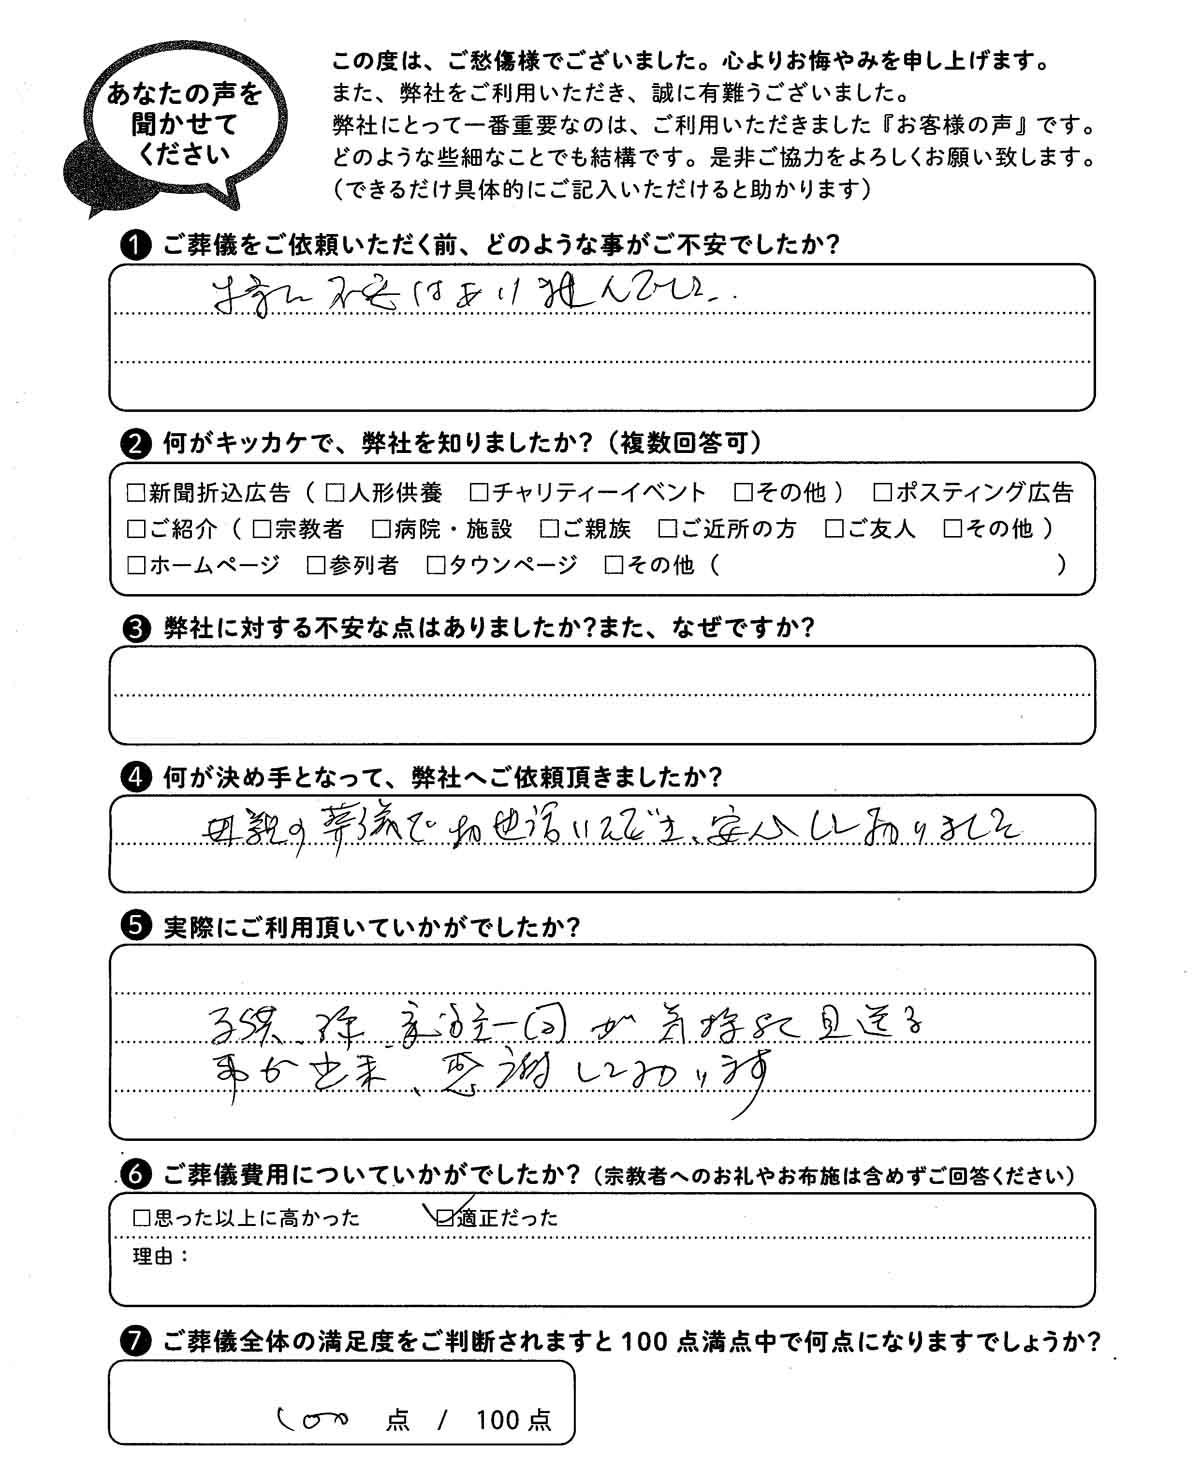 あなたの声を
聞かせて
ください
この度は、ご愁傷様でございました。心よりお悔やみを申し上げます。
また、弊社をご利用いただき、誠に有難うございました。
弊社にとって一番重要なのは、ご利用いただきました『お客様の声』です。
どのような些細なことでも結構です。是非ご協力をよろしくお願い致します。
（できるだけ具体的にご記入いただけると助かります）
❶ ご葬儀をご依頼いただく前、どのような事がご不安でしたか？
特に不安はありませんでした.
❷ 何がキッカケで、弊社を知りましたか？（複数回答可）
□新聞折込広告（□人形供養 □チャリティーイベント □その他） □ポスティング広告
□ご紹介（□宗教者 □病院・施設 □ご親族 □ご近所の方 □ご友人 □その他）
□ホームページ □参列者 □タウンページ □その他（ ）
❸ 弊社に対する不安な点はありましたか？また、なぜですか？
❹ 何が決め手となって、弊社へご依頼頂きましたか？
母親の葬儀でお世話いただき、安心しておりました
❺ 実際にご利用頂いていかがでしたか？
子供、孫、家族一同が気持よく見送る
事が出来、感謝しております
❻ ご葬儀費用についていかがでしたか？（宗教者へのお礼やお布施は含めずご回答ください）
□思った以上に高かった ☑適正だった
理由：
❼ ご葬儀全体の満足度をご判断されますと100点満点中で何点になりますでしょうか？
100 点 / 100点